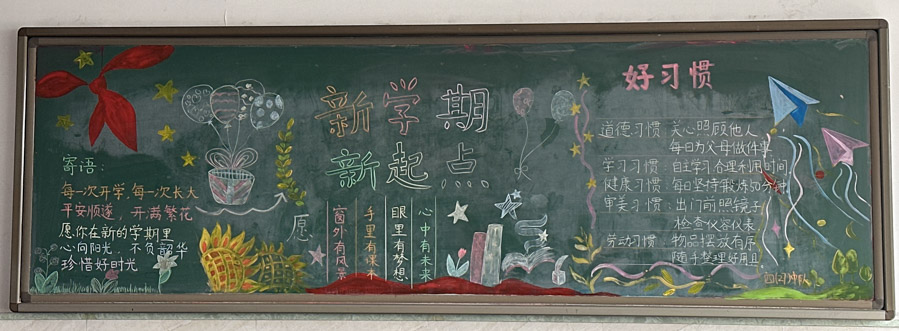 寄语:
每一次开学,每一次长大
平安顺遂,开满繁花
愿你在新的学期里
心向阳光,不负韶华
珍惜好时光
新学期
新起点
愿
窗外有风景
手里有课本
眼里有梦想
心中有未来
好习惯
道德习惯:关心照顾他人
每日为父母做件事
学习习惯:自主学习合理利用时间
健康习惯:每日坚持锻炼50分钟
审美习惯:出门前照镜子
检查仪容仪表
劳动习惯:物品摆放有序
随手整理好用具
四(2)中队